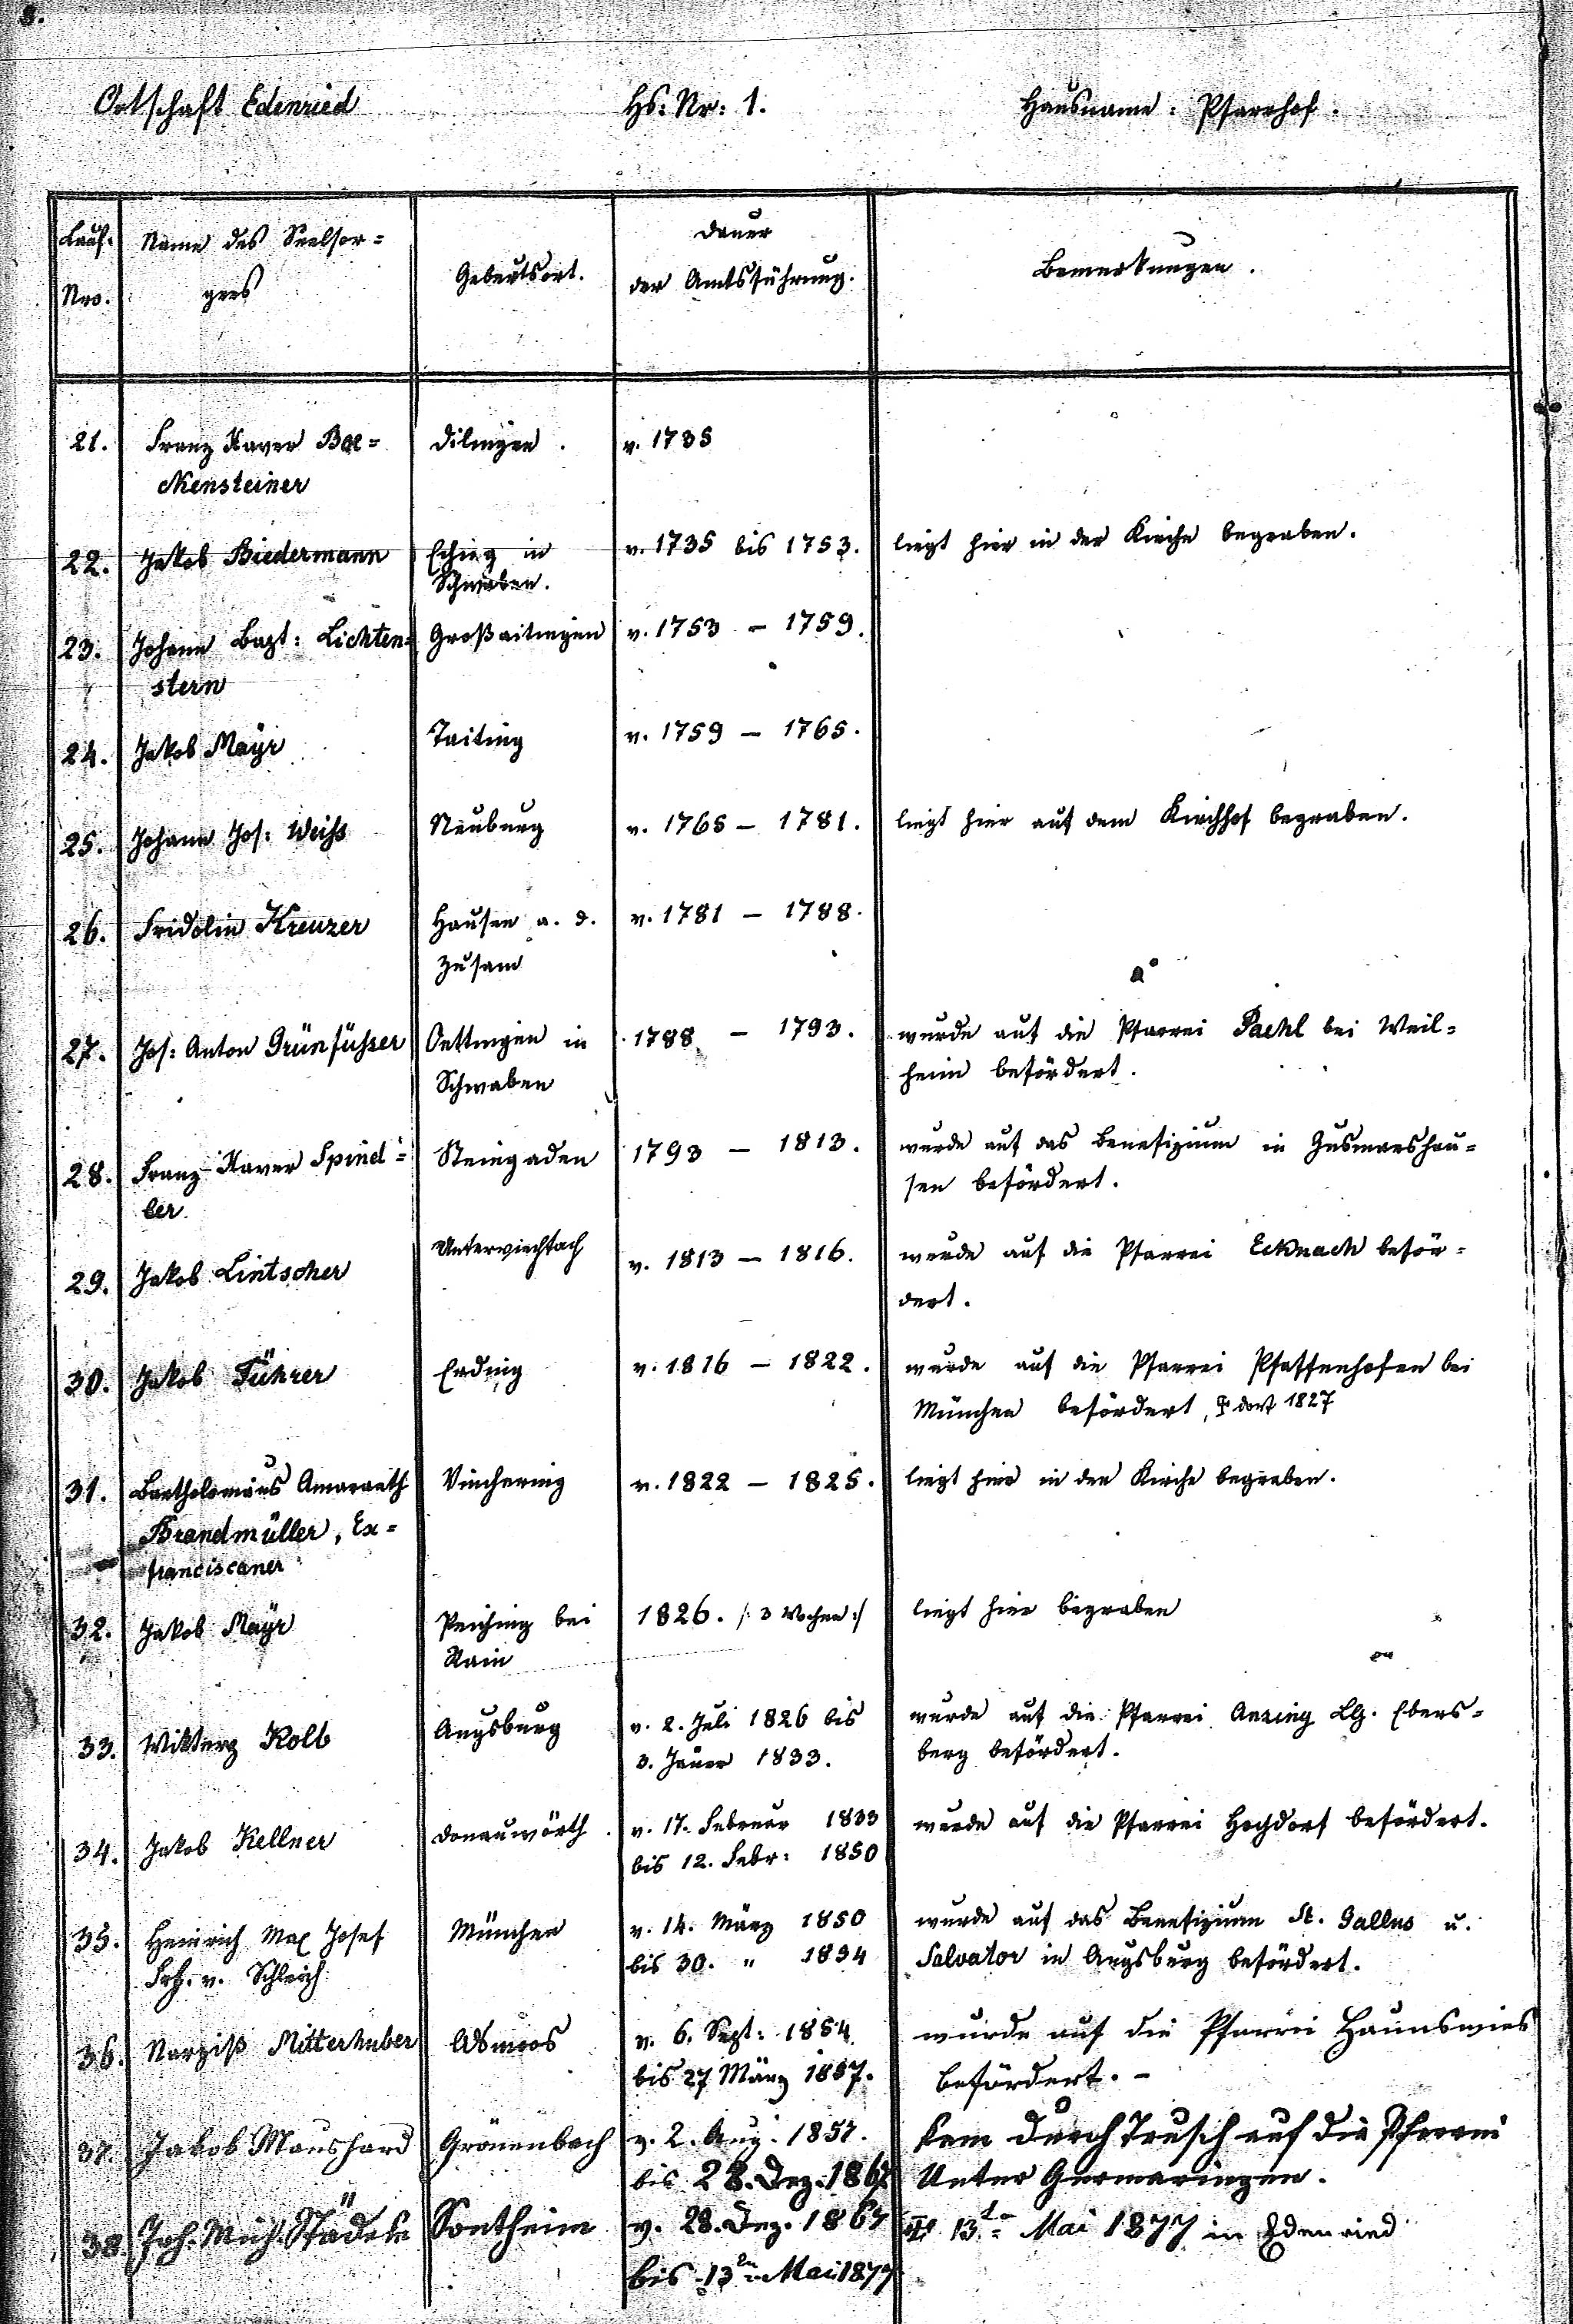 3.
Ortschaft Edenried Hs: Nr: 1. Hausname: Pfarrhof.
Lauf. Nro.
Name des Seelsor=
gers
Geburtsort.
Dauer
der Amtsführung.
Bemerkungen.
21. Franz Xaver Bae= Dilingen. v. 1735
ckensteiner
22. Jakob Biedermann Eching in v. 1735 bis 1753. liegt hier in der Kirche begraben.
Schwaben.
23. Johann Bapt: Lichten= Großaitingen v. 1753 – 1759.
stern
24. Jakob Mayr Taiting v. 1759 – 1765.
25. Johann Jos: Weiss Neuburg v. 1765 – 1781. liegt hier auf dem Kirchhof begraben.
26. Fridolin Kreuzer Hausen a. d. v. 1781 – 1788.
Zusam
27. Jos: Anton Grünfusser Oettingen in 1788 – 1793. wurde auf die Pfarrei Paehl bei Weil=
Schwaben heim befördert.
28. Franz Xaver Spind= Steingaden 1793 – 1813. wurde auf das Benefizium in Zusmarshau=
ler. sen befördert.
29. Jakob Lintscher Unterviechtach v. 1813 – 1816. wurde auf die Pfarrei Ecknach beför=
dert.
30. Jakob Führer Erding v. 1816 – 1822. wurde auf die Pfarrei Pfaffenhofen bei
München befördert, † dort 1827
31. Bartholomäus Amarath v. 1822 – 1825. liegt hier in der Kirche begraben.
Brandmüller, Ex=
franciscaner
32. Jakob Mayr Peiching bei 1826. /: 3 Wochen :/ liegt hier begraben
Rain
33. Wikterp Kolb Augsburg v. 2. Juli 1826 bis wurde auf die Pfarrei Anzing LG. Ebers=
3. Jäner 1833. berg befördert.
34. Jakob Kellner Donauwörth. v. 17. Februar 1833 wurde auf die Pfarrei Hochdorf befördert.
bis 12. Febr: 1850
35. Heinrich Max Josef München v. 14. März 1850 wurde auf das Benefizium St. Gallus u.
Frh. v. Schleich bis 30. " 1854 Salvator in Augsburg befördert.
36. Narziß Mitterhuber v. 6. Sept: 1854 wurde auf die Pfarrei Haunswies
bis 27 März 1857. befördert. –
37. Jakob Maushard Grönenbach v. 2. Aug. 1857. kam durch Tausch auf die Pfarrei
bis 28. Dez. 1867 Unter Germaringen.
38. Joh. Mich. Städele Sontheim v. 28. Dez. 1867 † 13tn Mai 1877 in Edenried
bis 13tn Mai 1877